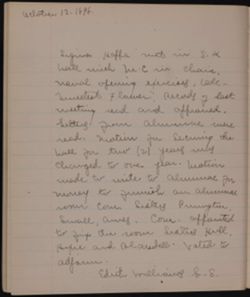 October 12. 1896.
Sigma Kappa met in S. K
Hall with Mc in chair,
usual opening exercises,
Record of last
meeting read and approved.
Letters from alumnae were
read. Motion for securing the
hall for two (2) years was
changed to one year. Motion
made to write to alumnae for
money to furnish an alumnae
room Com. Sisters
Small, Ames. Com. appointed
to fix the room Sisters Hall,
and Voted to
adjourn.
Edith Williams S. S.